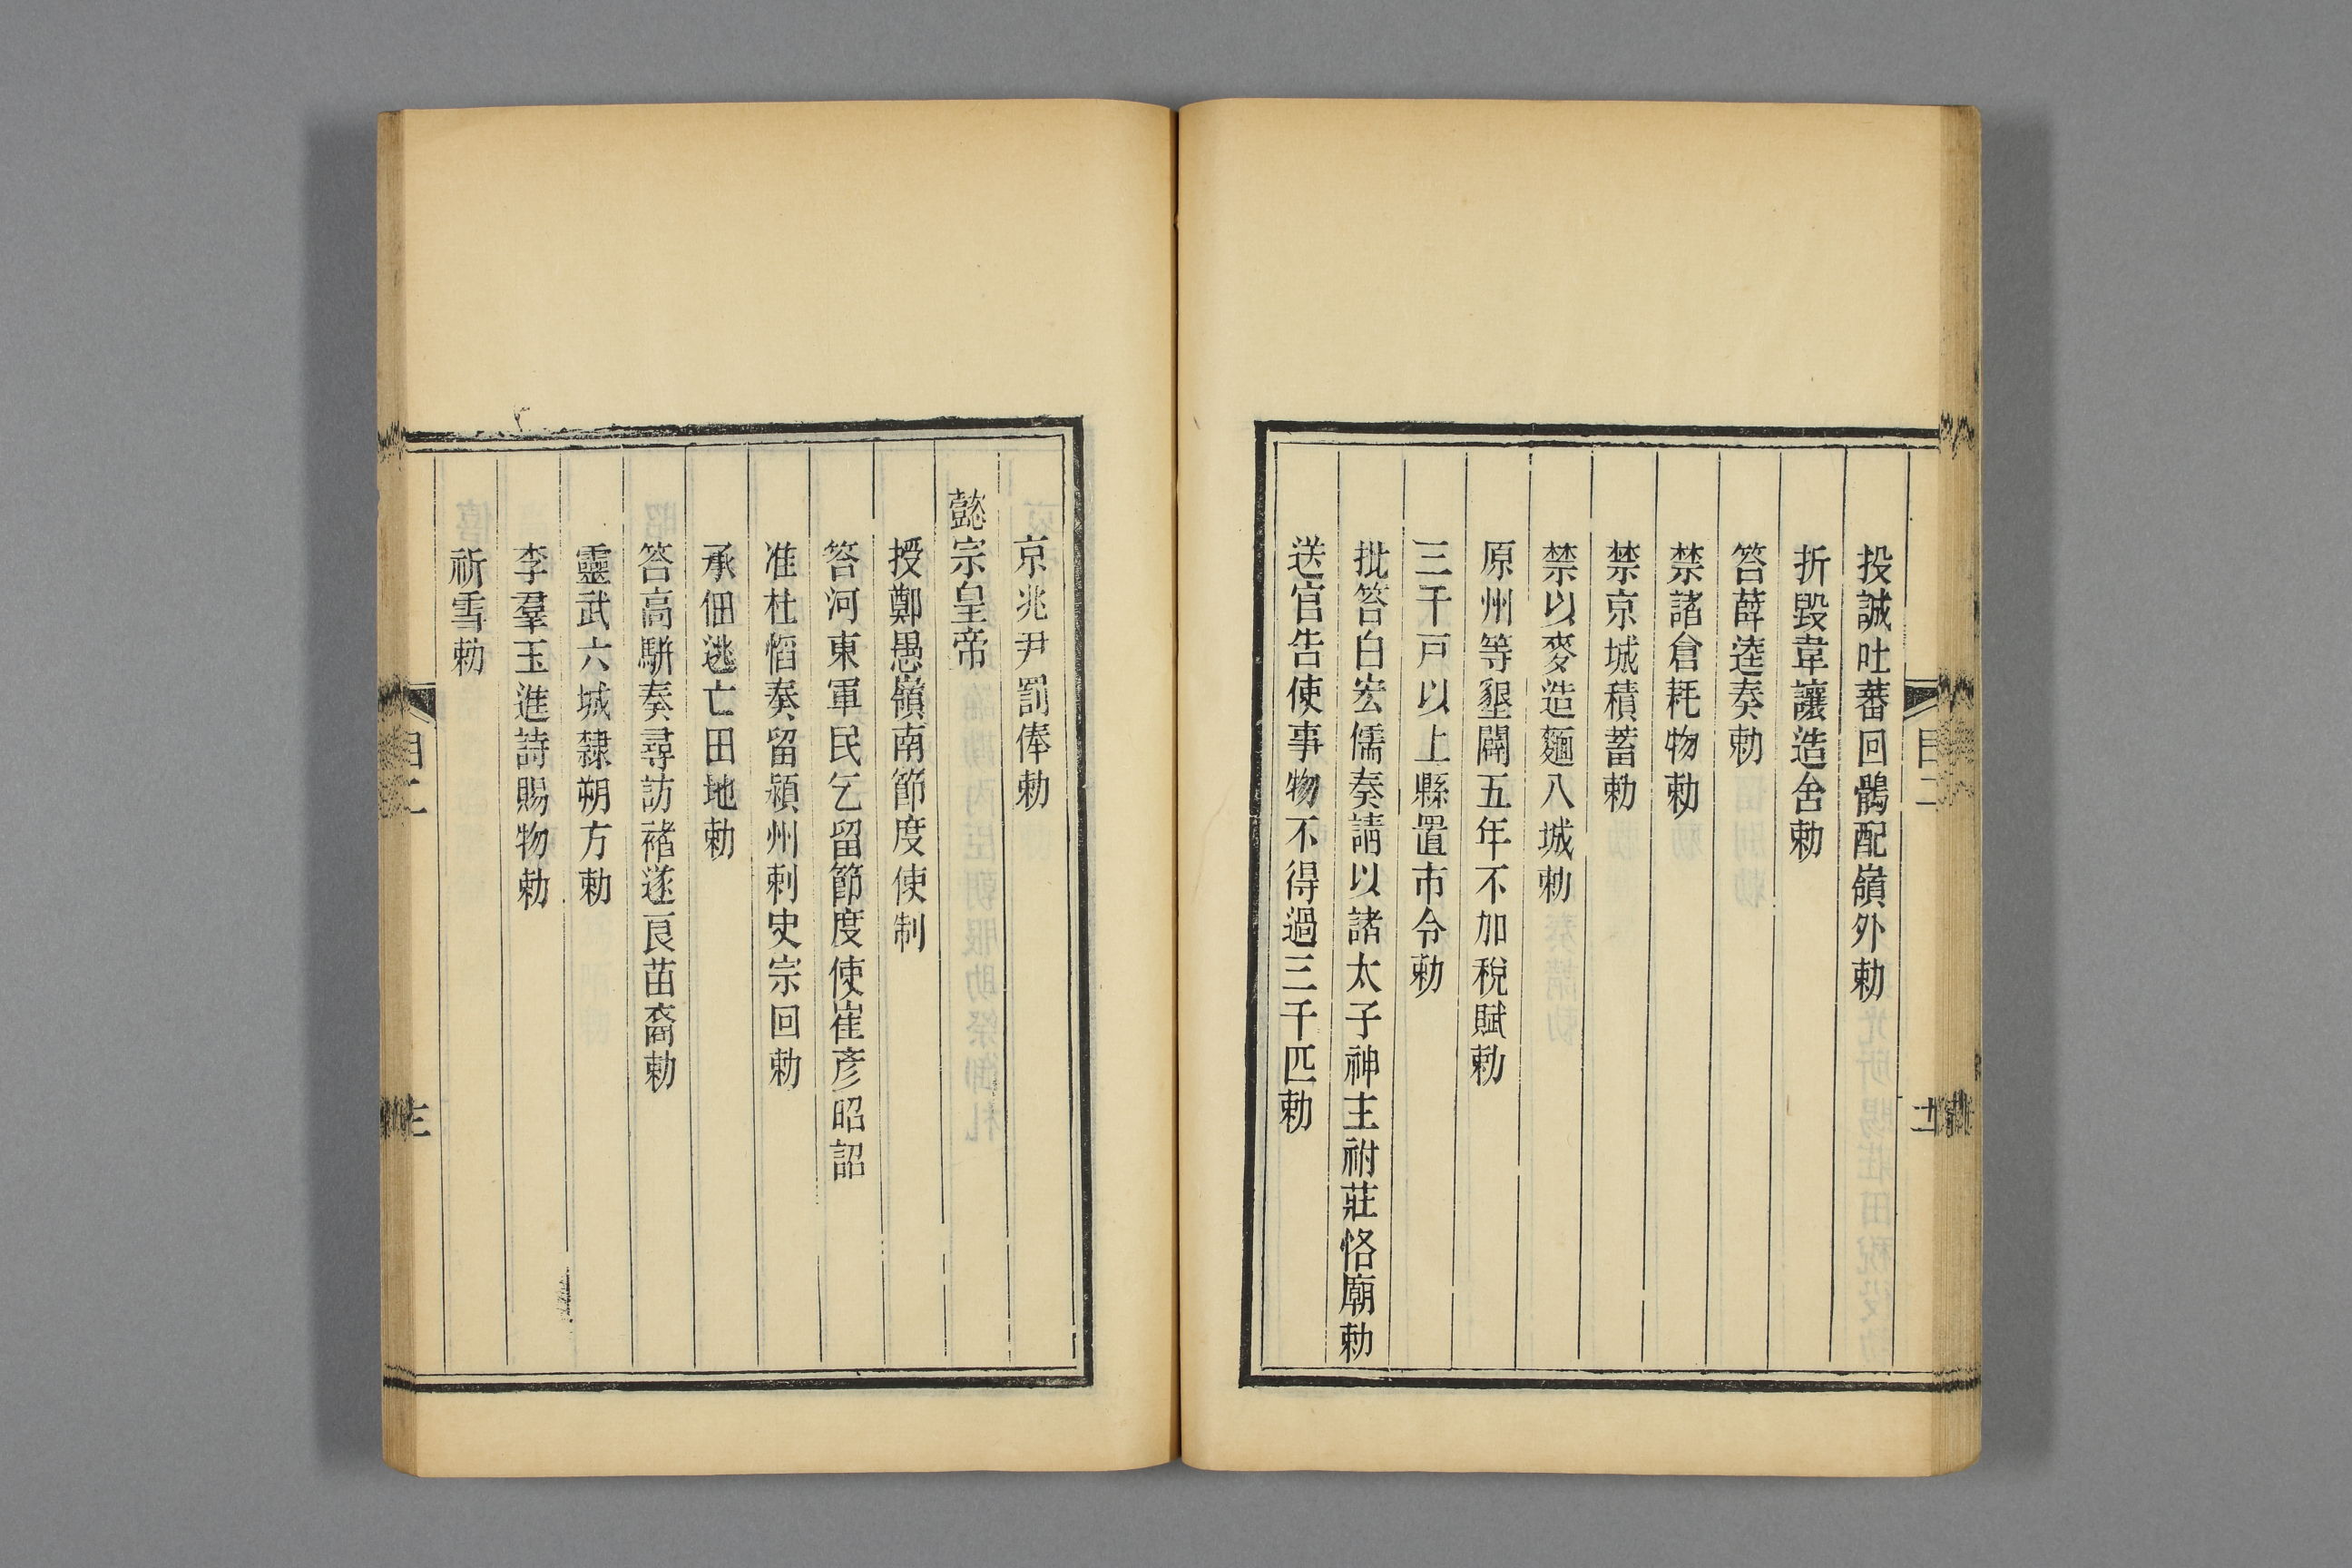 投誠吐蕃回鶻配嶺外勅
折毀韋讓造舍勅
答薛逵奏勅
禁諸倉耗物勅
禁京城積蓄勅
禁以麥造麵入城勅
原州等墾闢五年不加稅賦勅
三千戸以上縣置市令勅
批答白宏儒奏請以諸太子神主祔莊恪廟勅
送官告使事物不得過三千匹勅
目二
京兆尹罰俸勅
懿宗皇帝
授鄭愚嶺南節度使制
答河東軍民乞留節度使崔彥昭詔
准杜慆奏留潁州刺史宗回勅
承佃逃亡田地勅
答高駢奏尋訪褚遂良苗裔勅
靈武六城隸朔方勅
李羣玉進詩賜物勅
祈雪勅
目二